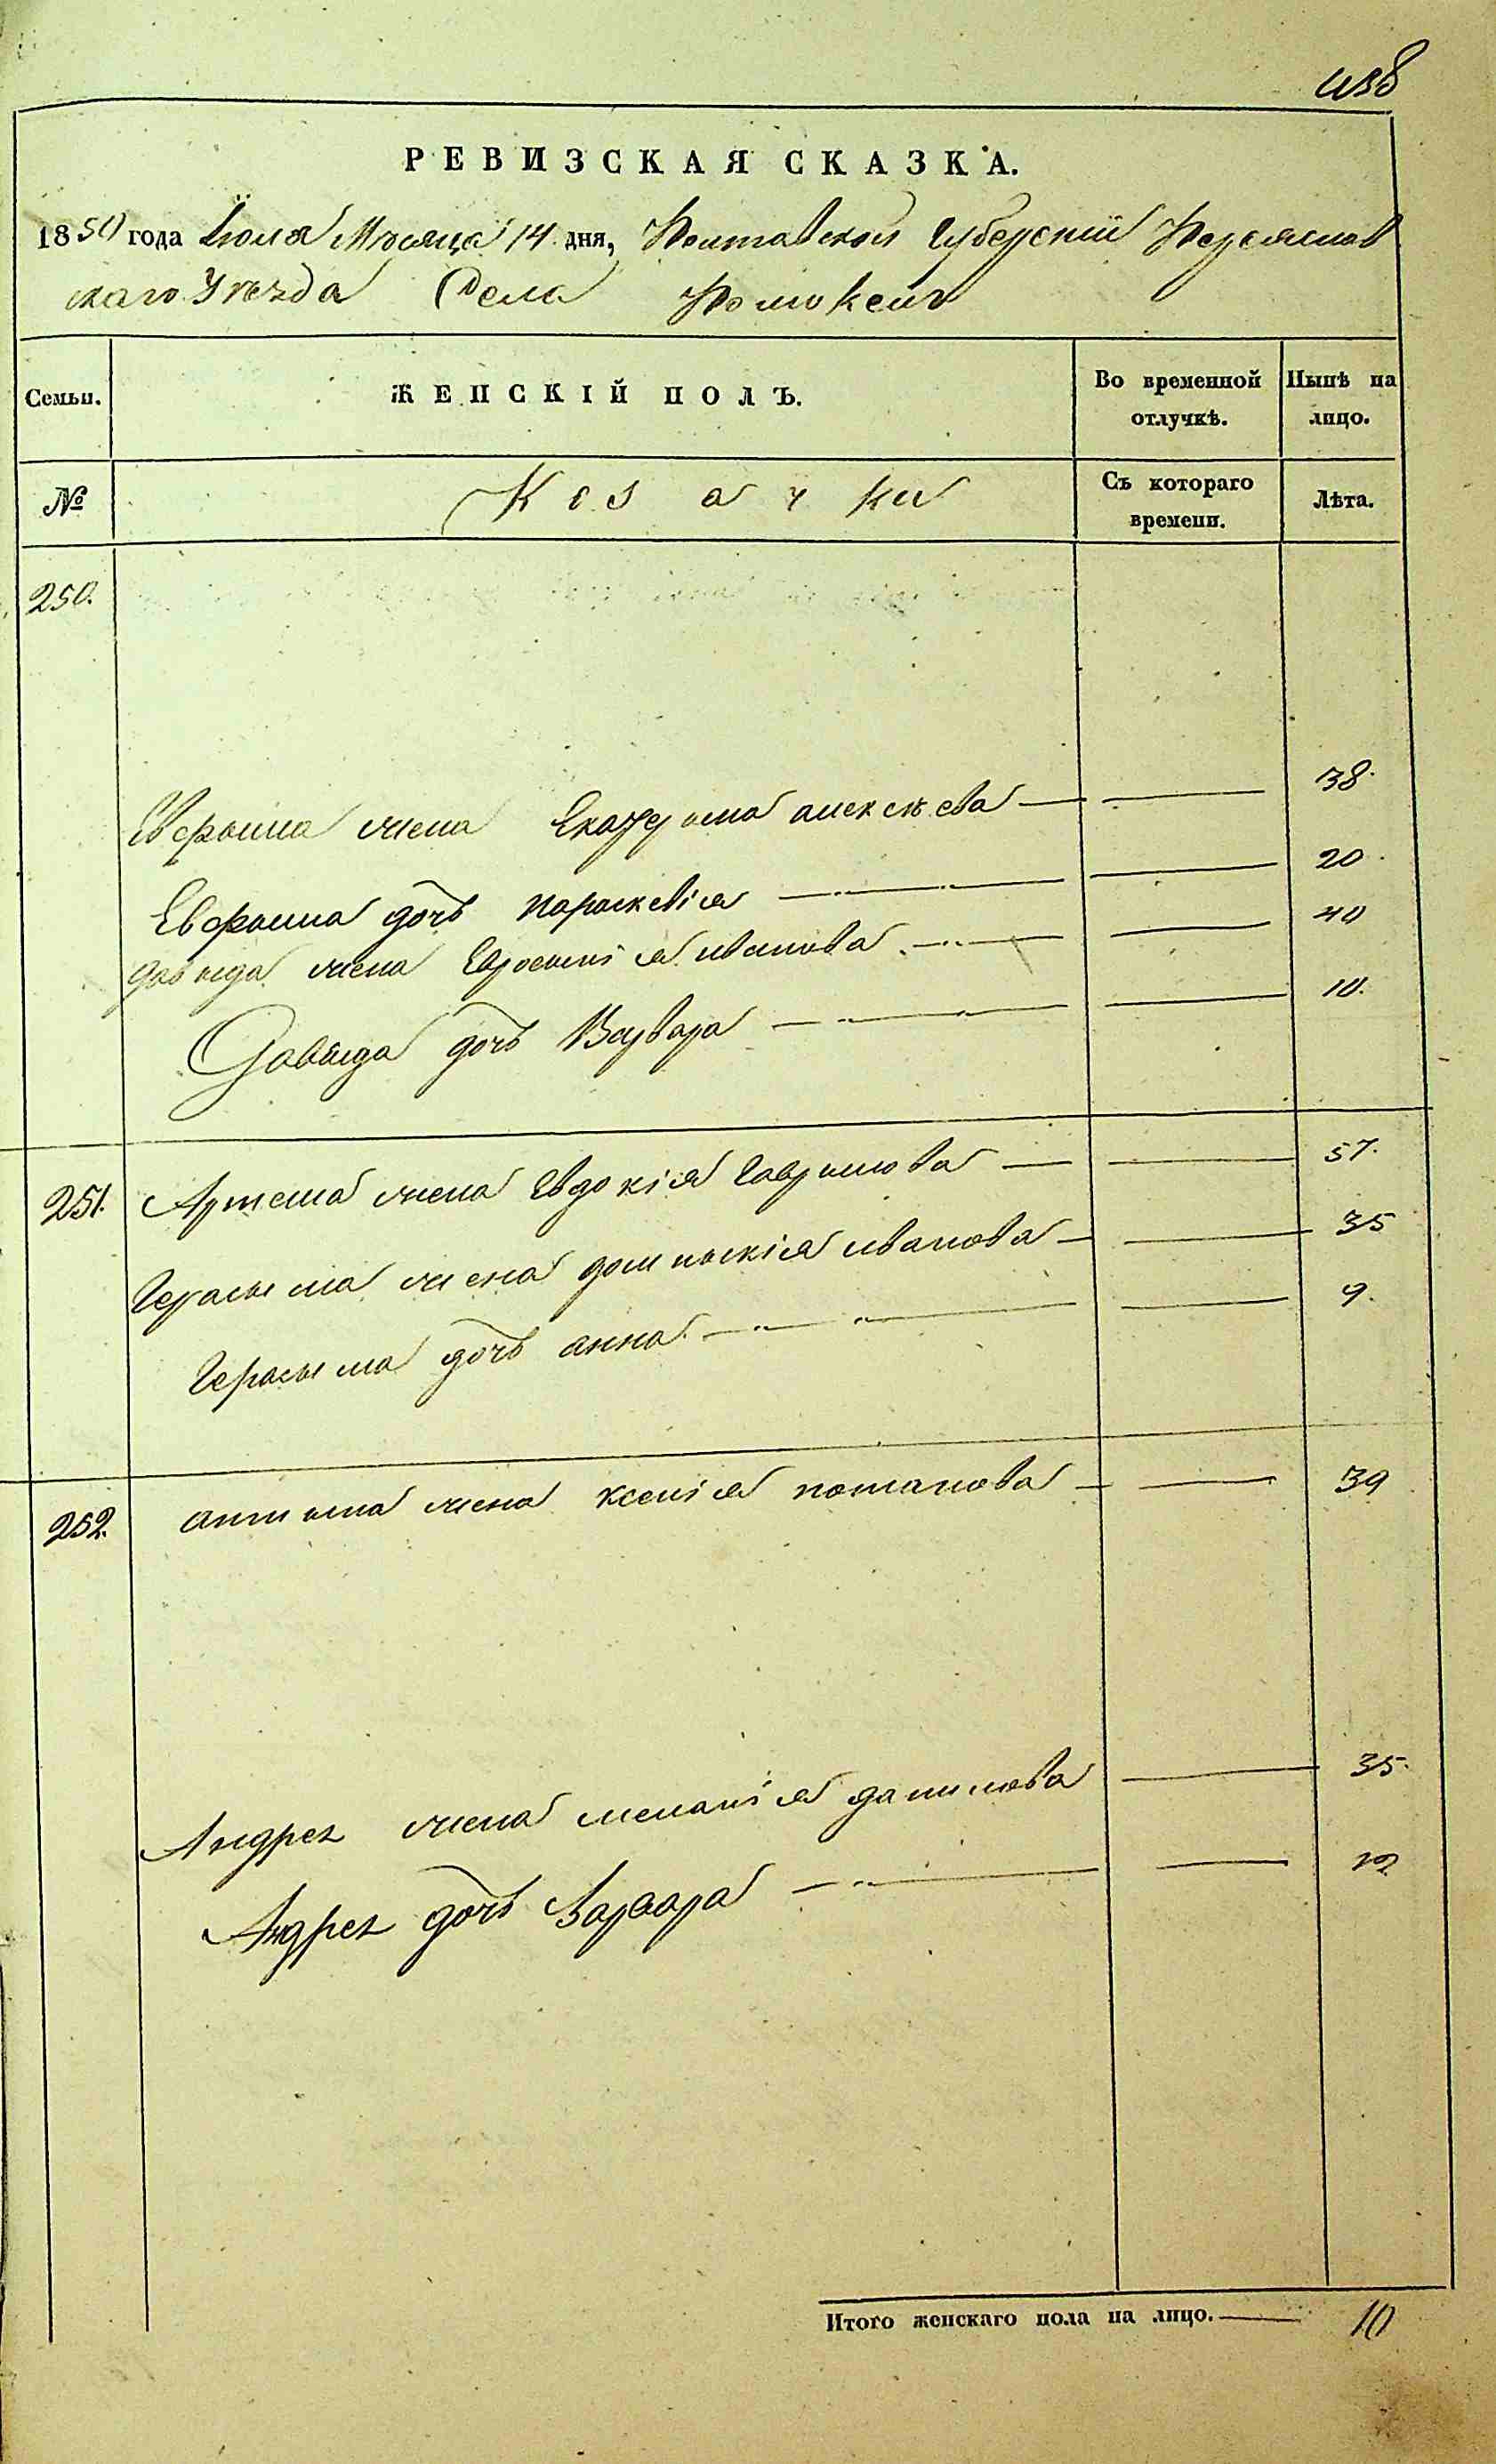 438
РЕВИЗСКАЯ СКАЗКА.
1850 года Іюля Мѣсяца 14 дня, Полтавской Губерскіи Переяслов
скаго Уѣзда Села Помоклич
Семьи. ЖЕНСКІЙ ПОЛЪ. Во временной отлучкѣ. Нынѣ на лицо.
№ Козачки Съ котораго времени. Лѣта.
250.
Евфыма жена Екатерына алексѣева — — 38.
Евфыма дочь параскевія — — 20.
давыда жена Евросынія иванова — — 40
Давыда дочь Варвара — — 10.
251. Артема жена Евдокія Гаврилова — — 57.
Герасыма жена домныкія иванова — — 35
Герасыма дочь анна — — 9.
252. антыма жена ксенія потапова — — 39
Андрея жена меланія данилова — 35.
Андрея дочь Варвара — — 12
Итого женскаго пола на лицо. — 10